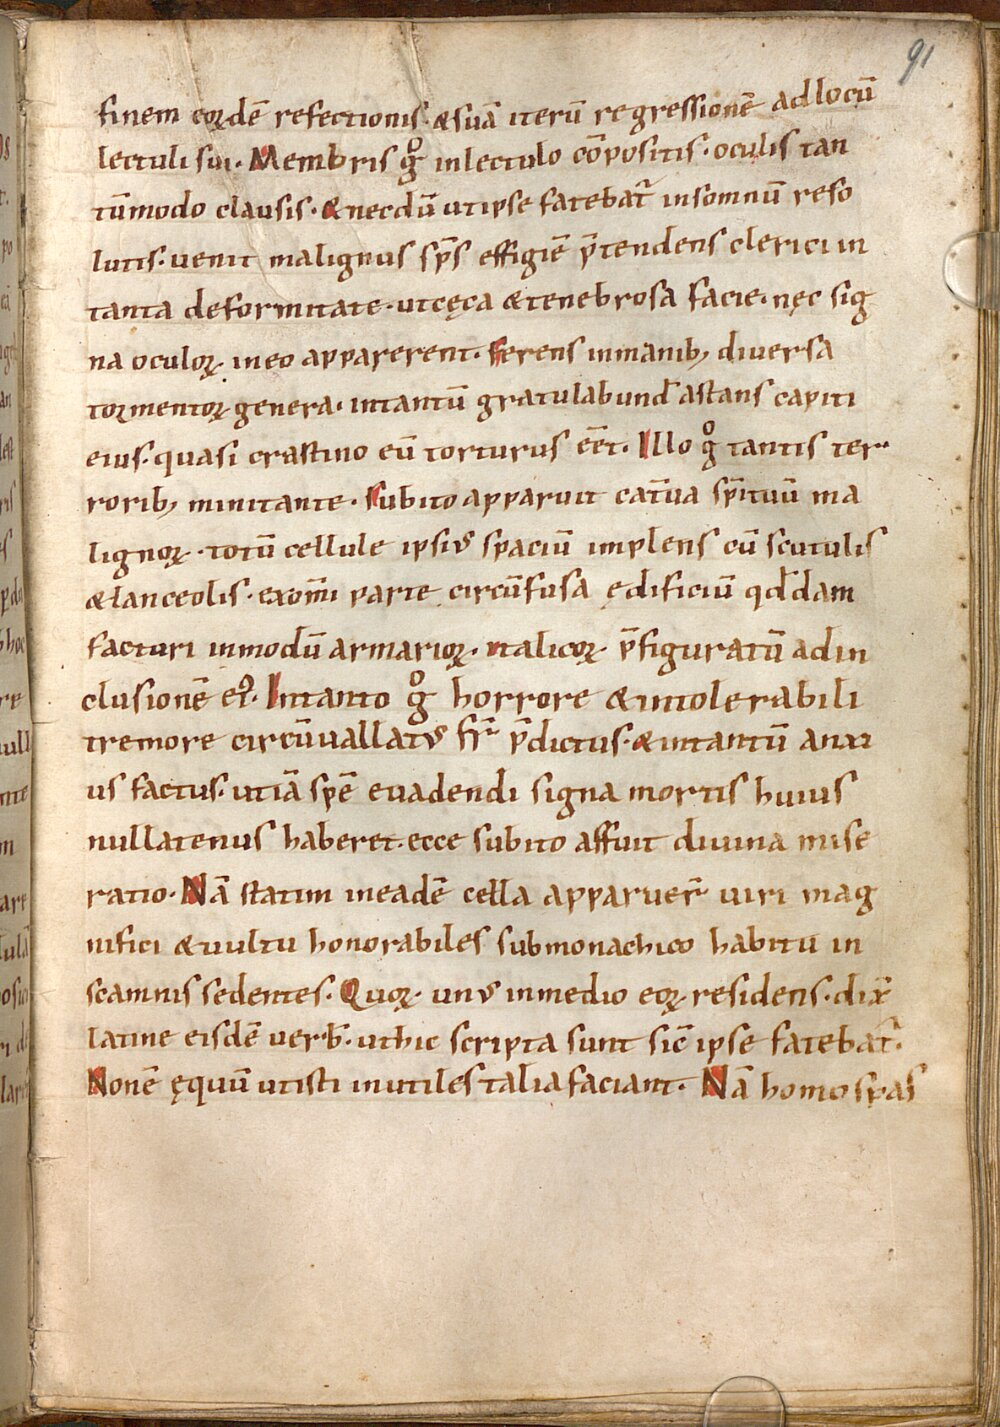 91
finem eoꝝdē refectionis· &suā iterū regressionē adlocū
lectuli sui· Membris gͦ inlectulo cōpositis· oculis tan
tūmodo clausis· &necdū utipse fatebat᷑ insomnū reso
lutis· uenit malignus sp̄s effigiē p̄tendens clerici in
tanta deformitate· utcęca &tenebrosa facie· nęc sig
na oculoꝝ ineo apparerent. Ferens inmanib; diuersa
tormentoꝝ genera· intantū gratulabund᷒ astans capiti
eius· quasi crastino eū torturus eēt· Illo gͦ tantis ter
rorib; minitante· subito apparuit cat̄ua sp̄ituū ma
lignoꝝ· totū cellule ipsiꝰ spaciū implens cū scutulis
&lanceolis· exom̄i parte circūfusa ędificiū qd̄dam
facturi inmodū armarioꝝ· italicoꝝ· p̄figuratū adin
clusionē eiꝰ· Intanto gͦ horrore &intolerabili
tremore circūuallatꝰ fr̄ p̄dictus· &intantū anxi
us factus· utiā spē euadendi signa mortis huius
nullatenus haberet· ecce subito affuit diuina mise
ratio· Nā statim ineadē cella apparuer̄ uiri mag
nifici &uultu honorabiles submonachico habitu in
scamnis sedentes· Quoꝝ· unꝰ inmedio eoꝝ residens· dix̄
latine eisdē uerb̄· uthic scripta sunt sic̄ ipse fatebat᷑·
Nonē ęquū utisti inutiles talia faciant· Nā homo sp̄as